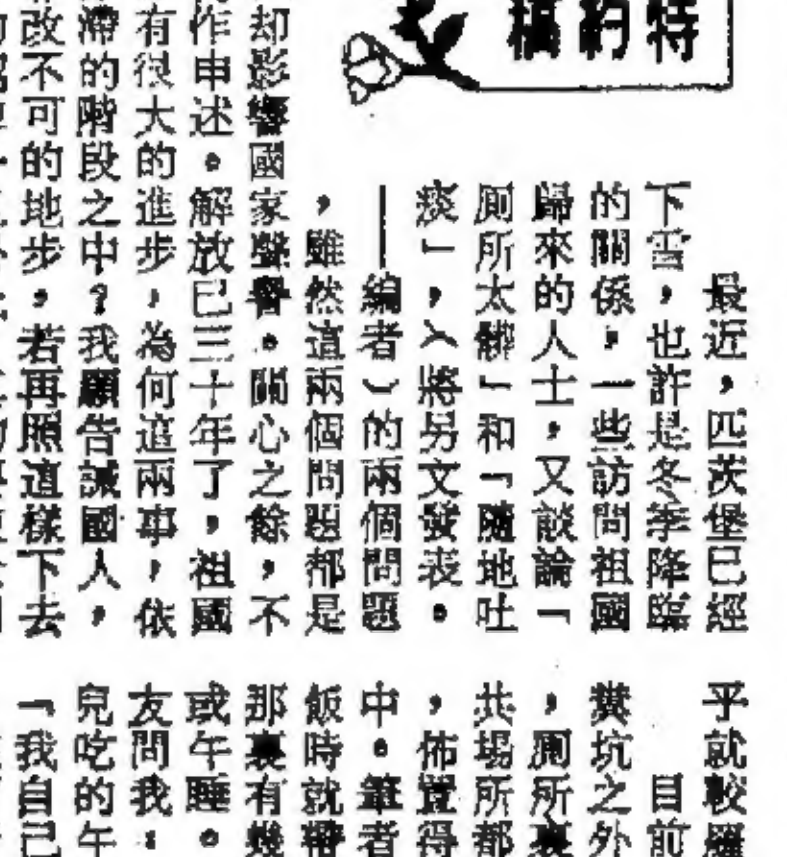 特約稿
最近，匹茨堡已經
下雪，也許是冬季降臨
的關係，一些訪問祖國
歸來的人士，又談論「
厠所太髒」和「隨地吐
痰」，（將另文發表。
——編者）的兩個問題
，雖然這兩個問題都是
却影響國家聲譽。關心之餘，不
作申述。解放已三十年了，祖國
有很大的進步，為何這兩事，依
滯的階段之中？我願告誡國人，
改不可的地步，若再照這樣下去
乎就較
目前
糞坑之外
，厠所裏
共場所都
，佈置得
中。筆者
飯時就帶
那裏有幾
或午睡。
友問我：
兒吃的午
「我自己